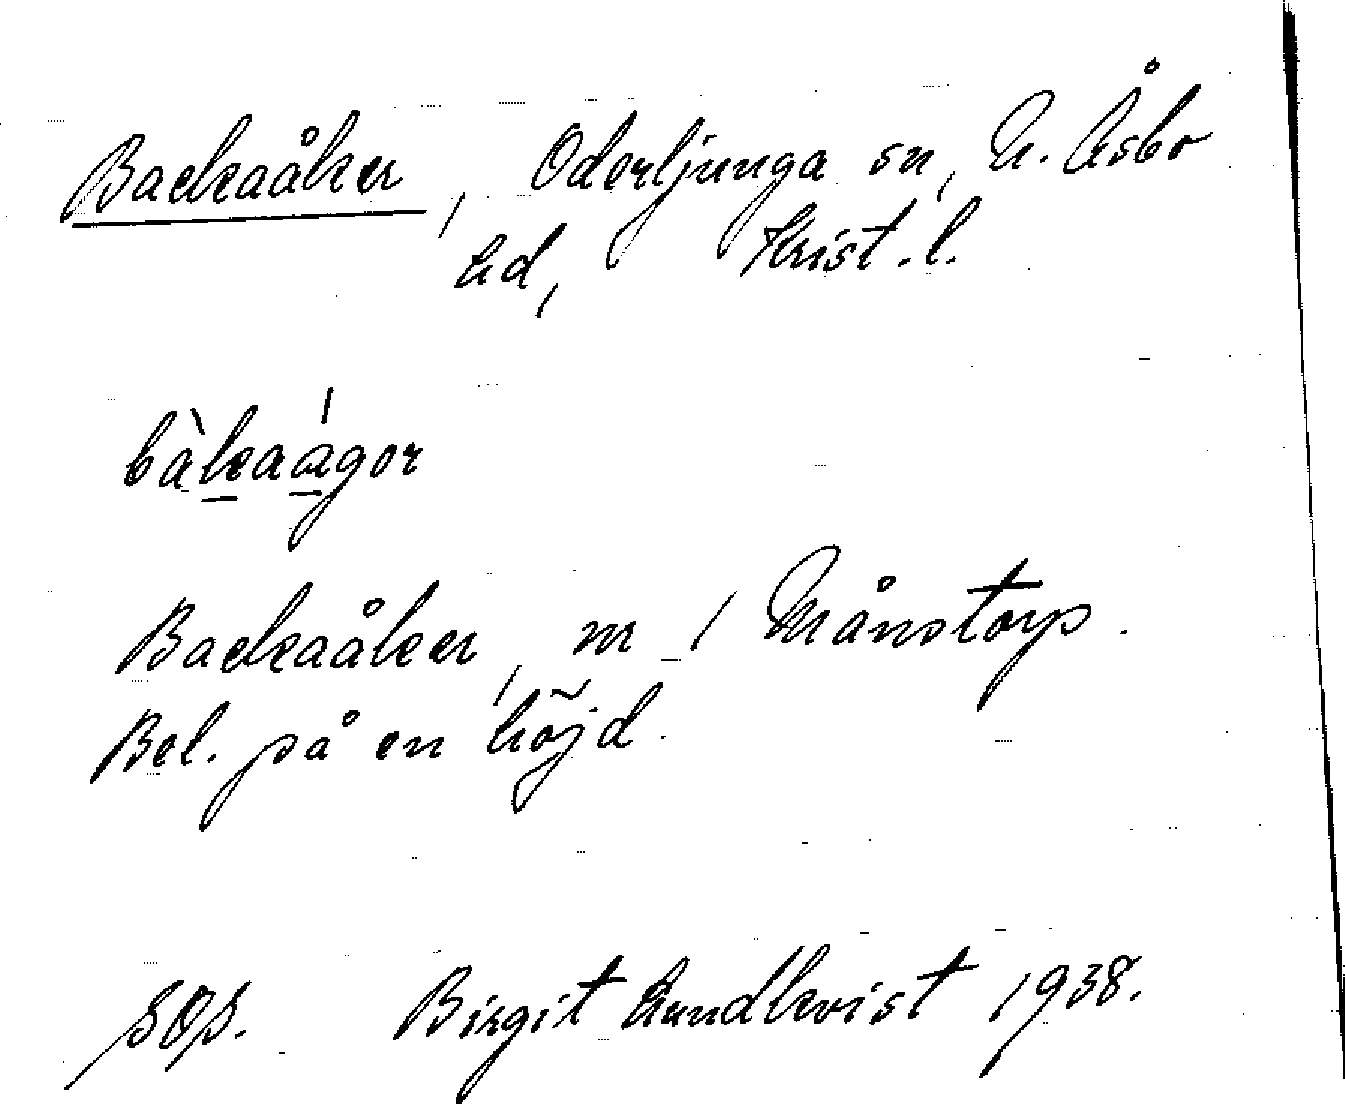 Backaåker, Oderljunga sn, N. Åsbo
hd, Krist. l.
bàkaágor
Backaåker, m, Månstorp.
Bel. på en höjd.
SOS. Birgit Lundkvist 1938.